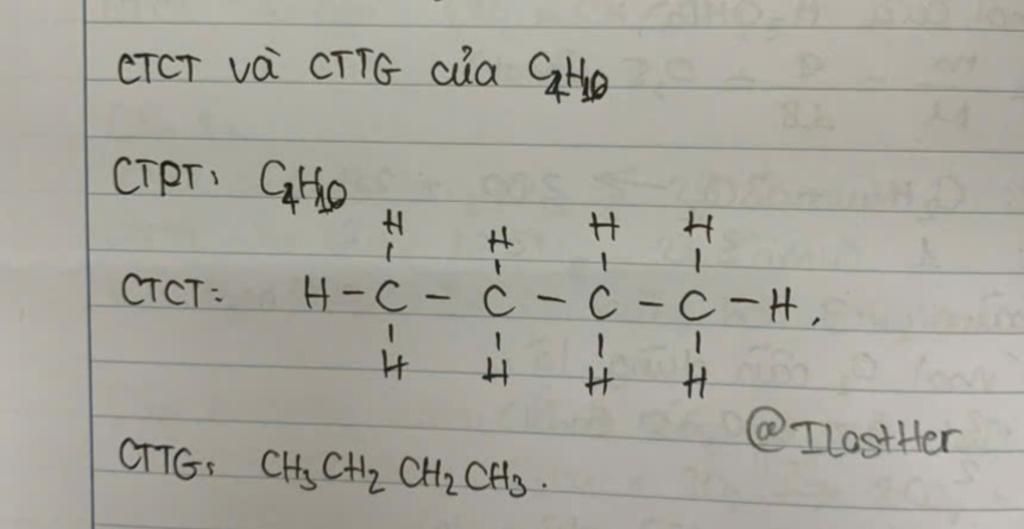 CTCT và CTTG của C4H10
CTPT: C4H10
H H H H
CTCT: H-C-C-C-C-H.
H H H H
@ILostHer
CTTG: CH3CH2CH2CH3.